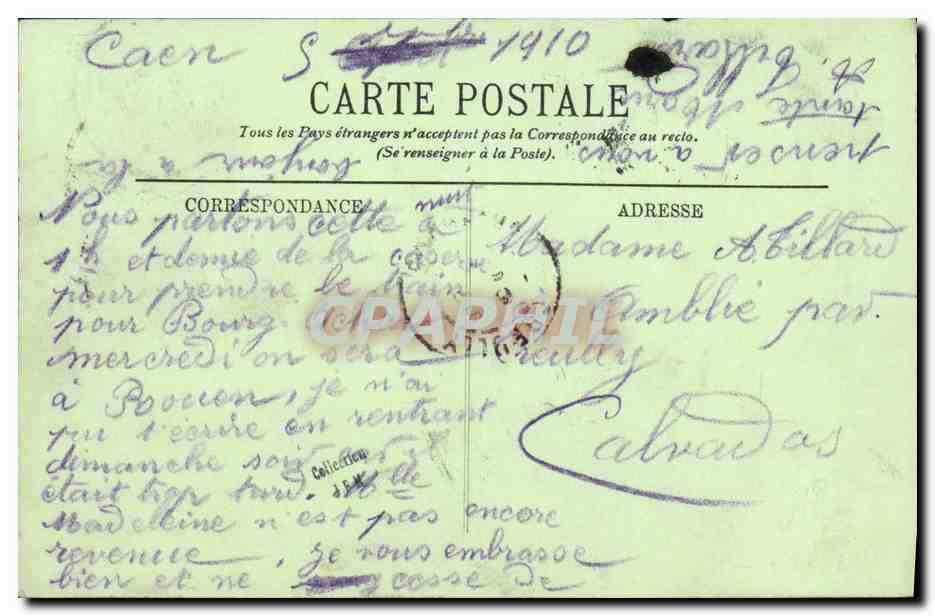 Caen 5 1910
CARTE POSTALE
Tous les Pays étrangers n'acceptent pas la Correspondance au recto.
(Se renseigner à la Poste).
CORRESPONDANCE
Nous partons cette nuit à
1h et demie de la caserne
pour prendre le train
pour Bourg
mercredi on sera
à Rouen, je n'ai
pu t'écrire en rentrant
dimanche soir
était trop tard. Mlle
Madeleine n'est pas encore
revenue, je vous embrasse
bien et ne cesse de
penser à vous
bonjour à la
tante Marie
A. Tillard
ADRESSE
Madame A Tillard
Amblie par
Creully
Calvados
Collection
CPAPHIL